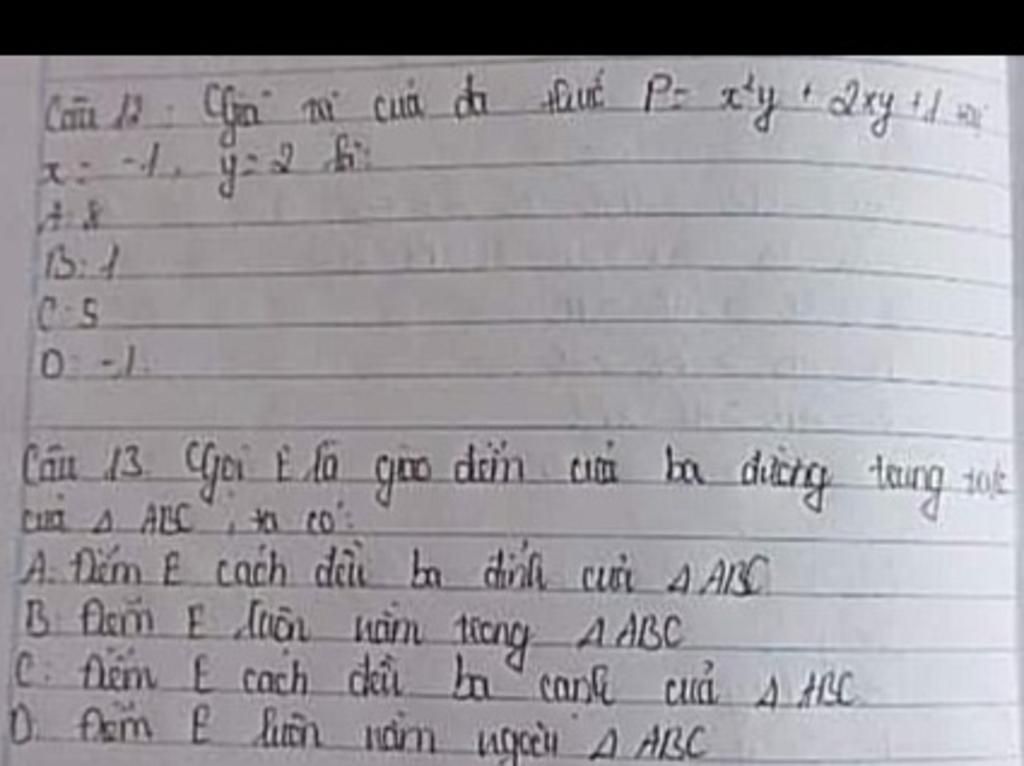 Câu 12: Giá trị của đa thức P = x²y + 2xy + 1 tại
x = -1, y = 2 là:
A. 8
B: 1
C: 5
D: -1.
Câu 13. Gọi E là giao điểm của ba đường trung trực
của Δ ABC, ta có:
A. Điểm E cách đều ba đỉnh của Δ ABC
B. Điểm E luôn nằm trong Δ ABC
C: Điểm E cách đều ba cạnh của Δ ABC
D. Điểm E luôn nằm ngoài Δ ABC